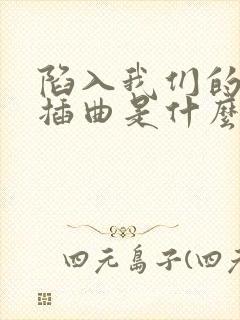 陷入我们的
插曲是什麼
四元岛子(四元